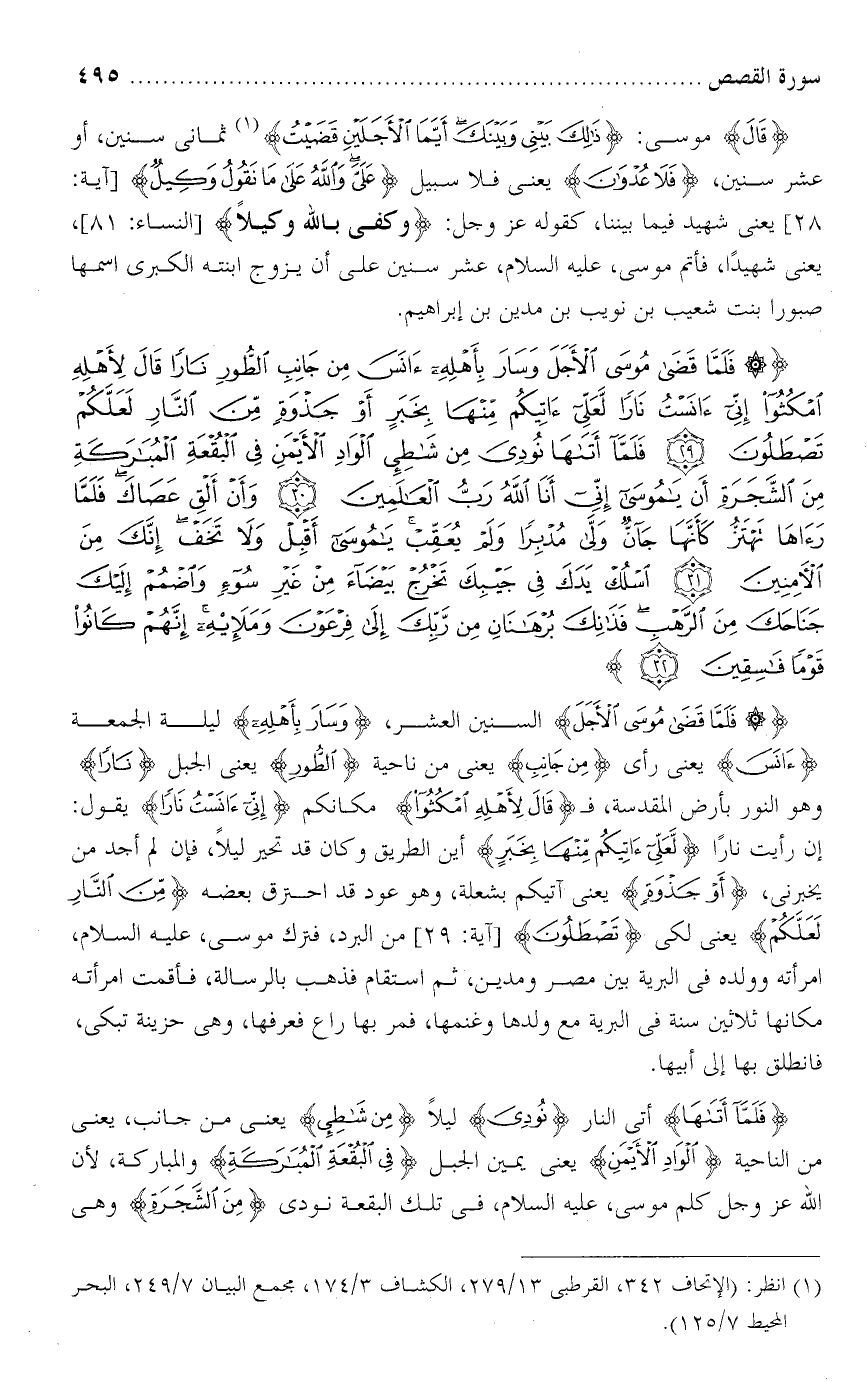 سورة القصص ........................................................................ ٤٩٥
﴿قَالَ﴾ موسى: ﴿ذَٰلِكَ بَيْنِى وَبَيْنَكَ ۖ أَيَّمَا ٱلْأَجَلَيْنِ قَضَيْتُ﴾(١) ثمانى سنين، أو
عشر سنين، ﴿فَلَا عُدْوَٰنَ﴾ يعنى فلا سبيل ﴿عَلَىَّ ۖ وَٱللَّهُ عَلَىٰ مَا نَقُولُ وَكِيلٌ﴾ [آية:
٢٨] يعنى شهيد فيما بيننا، كقوله عز وجل: ﴿وكفى بالله وكيلاً﴾ [النساء: ٨١]،
يعنى شهيدًا، فأتم موسى، عليه السلام، عشر سنين على أن يزوج ابنته الكبرى اسمها
صبورا بنت شعيب بن نويب بن مدين بن إبراهيم.
﴿۞ فَلَمَّا قَضَىٰ مُوسَى ٱلْأَجَلَ وَسَارَ بِأَهْلِهِۦٓ ءَانَسَ مِن جَانِبِ ٱلطُّورِ نَارًا قَالَ لِأَهْلِهِ
ٱمْكُثُوٓا۟ إِنِّىٓ ءَانَسْتُ نَارًا لَّعَلِّىٓ ءَاتِيكُم مِّنْهَا بِخَبَرٍ أَوْ جَذْوَةٍ مِّنَ ٱلنَّارِ لَعَلَّكُمْ
تَصْطَلُونَ ٢٩ فَلَمَّآ أَتَىٰهَا نُودِىَ مِن شَٰطِئِ ٱلْوَادِ ٱلْأَيْمَنِ فِى ٱلْبُقْعَةِ ٱلْمُبَٰرَكَةِ
مِنَ ٱلشَّجَرَةِ أَن يَٰمُوسَىٰٓ إِنِّىٓ أَنَا ٱللَّهُ رَبُّ ٱلْعَٰلَمِينَ ٣٠ وَأَنْ أَلْقِ عَصَاكَ ۖ فَلَمَّا
رَءَاهَا تَهْتَزُّ كَأَنَّهَا جَآنٌّ وَلَّىٰ مُدْبِرًا وَلَمْ يُعَقِّبْ ۚ يَٰمُوسَىٰٓ أَقْبِلْ وَلَا تَخَفْ ۖ إِنَّكَ مِنَ
ٱلْءَامِنِينَ ٣١ ٱسْلُكْ يَدَكَ فِى جَيْبِكَ تَخْرُجْ بَيْضَآءَ مِنْ غَيْرِ سُوٓءٍ وَٱضْمُمْ إِلَيْكَ
جَنَاحَكَ مِنَ ٱلرَّهْبِ ۖ فَذَٰنِكَ بُرْهَٰنَانِ مِن رَّبِّكَ إِلَىٰ فِرْعَوْنَ وَمَلَإِي۟هِۦٓ ۚ إِنَّهُمْ كَانُوا۟
قَوْمًا فَٰسِقِينَ ٣٢ ﴾
﴿۞ فَلَمَّا قَضَىٰ مُوسَى ٱلْأَجَلَ﴾ السنين العشر، ﴿وَسَارَ بِأَهْلِهِۦٓ﴾ ليلة الجمعة
﴿ءَانَسَ﴾ يعنى رأى ﴿مِن جَانِبِ﴾ يعنى من ناحية ﴿ٱلطُّورِ﴾ يعنى الجبل ﴿نَارًا﴾
وهو النور بأرض المقدسة، فـ﴿قَالَ لِأَهْلِهِ ٱمْكُثُوٓا۟﴾ مكانكم ﴿إِنِّىٓ ءَانَسْتُ نَارًا﴾ يقول:
إن رأيت نارًا ﴿لَّعَلِّىٓ ءَاتِيكُم مِّنْهَا بِخَبَرٍ﴾ أين الطريق وكان قد تحير ليلاً، فإن لم أجد من
يخبرنى، ﴿أَوْ جَذْوَةٍ﴾ يعنى آتيكم بشعلة، وهو عود قد احترق بعضه ﴿مِّنَ ٱلنَّارِ
لَعَلَّكُمْ﴾ يعنى لكى ﴿تَصْطَلُونَ﴾ [آية: ٢٩] من البرد، فترك موسى، عليه السلام،
امرأته وولده فى البرية بين مصر ومدين، ثم استقام فذهب بالرسالة، فأقمت امرأته
مكانها ثلاثين سنة فى البرية مع ولدها وغنمها، فمر بها راع فعرفها، وهى حزينة تبكى،
فانطلق بها إلى أبيها.
﴿فَلَمَّآ أَتَىٰهَا﴾ أتى النار ﴿نُودِىَ﴾ ليلاً ﴿مِن شَٰطِئِ﴾ يعنى من جانب، يعنى
من الناحية ﴿ٱلْوَادِ ٱلْأَيْمَنِ﴾ يعنى يمين الجبل ﴿فِى ٱلْبُقْعَةِ ٱلْمُبَٰرَكَةِ﴾ والمباركة، لأن
الله عز وجل كلم موسى، عليه السلام، فى تلك البقعة نودى ﴿مِنَ ٱلشَّجَرَةِ﴾ وهى
(١) انظر: (الإتحاف ٣٤٢، القرطبى ٢٧٩/١٣، الكشاف ١٧٤/٣، مجمع البيان ٢٤٩/٧، البحر
المحيط ١٢٥/٧).